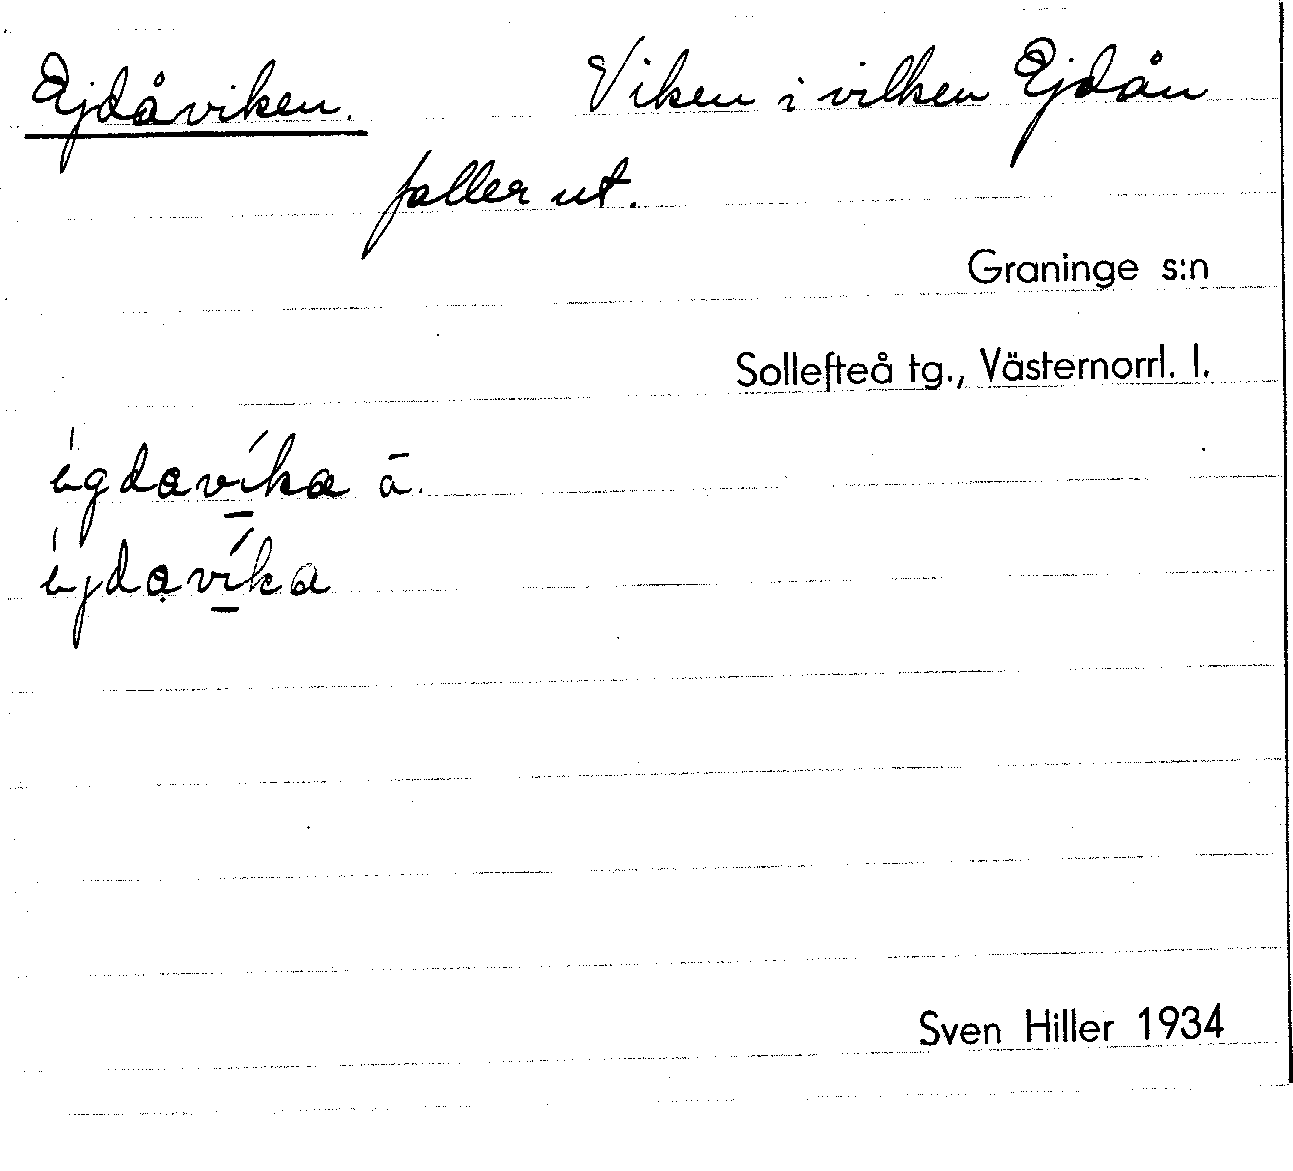 Ejdåviken. Viken i vilken Ejdån
faller ut.
Graninge s:n
Sollefteå tg., Västernorrl. l.
égdavíka ā.
éjdavíka
Sven Hiller 1934